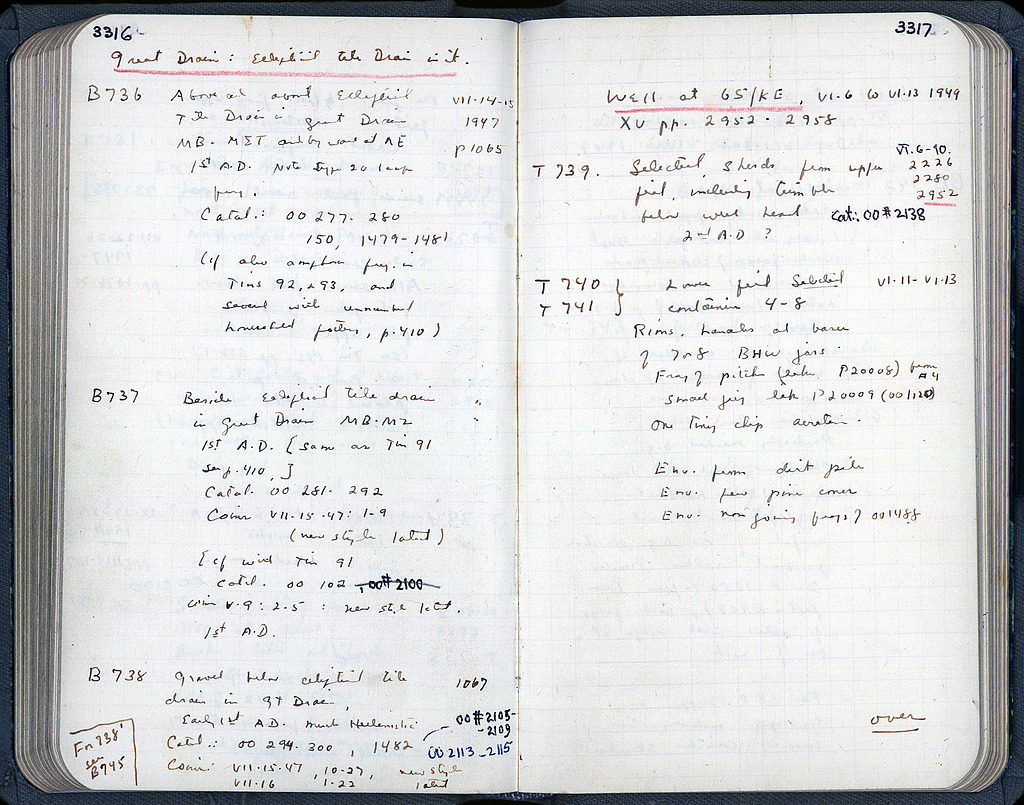 3316
Great Drain: Elliptical tile Drain in it.
B736 Above and about Elliptical VII-14-15
Tile Drain in great Drain 1947
MB. MET and by wall at NE p 1065
1st A.D. Note type 20 lamp
frag
Catal.: OO 277-280
150, 1479-1481
(cf also amphora frag. in
Tins 92, 293, and
several with unmended
household pottery, p. 410)
B737 Beside elliptical tile drain "
in great Drain MB-MZ "
1st A.D. [Same as Tin 91
see p. 410,]
Catal. OO 281-292
Coins VII-15-47: 1-9
(new style latest)
[cf with Tin 91
Catal. OO 102, OO#2100
coin V-9: 2-5: new style latest.
1st A.D.
B738 gravel below elliptical tile 1067
drain in gt Drain,
Early 1st A.D. much Hellenistic OO#2105-
-2109
Catal.: OO 294-300, 1482 OO 2113-2115
Coins: VII-15-47, 10-27, new style
VII-16 1-22 latest
For 738'
see
B745
3317
Well at 65/KE, VI-6 to VI-13 1949
XV pp. 2952-2958
T 739. Selected sherds from upper VI.6-10.
2226
fill, including tumble 2280
2952
below well head Cat: OO#2138
2nd A.D?
T 740 } Lower fill Selected VI-11-VI-13
T 741 } container 4-8
Rims handles and bases
of 7 or 8 BHW jars.
Frag of pitcher (like P20008) from
#4
small jug like P20009 (OO1120)
one tiny chip Aretine.
Env. from dirt pile
Env. few pine cones
Env. non joining frags of OO1488
over